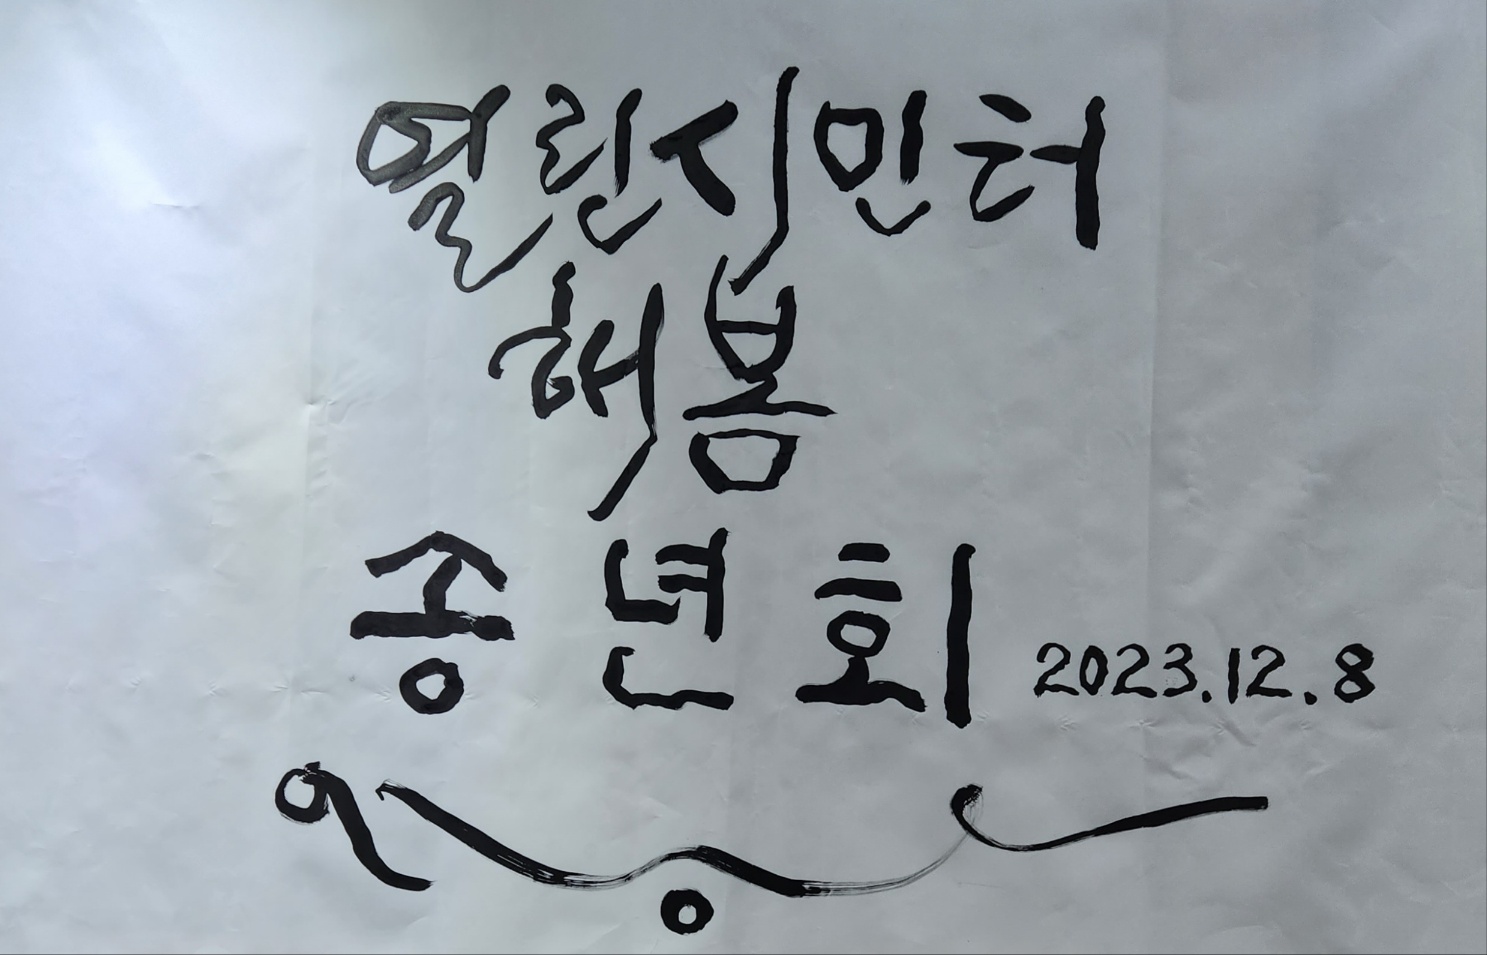 열린시민터
해봄
송년회 2023.12.8